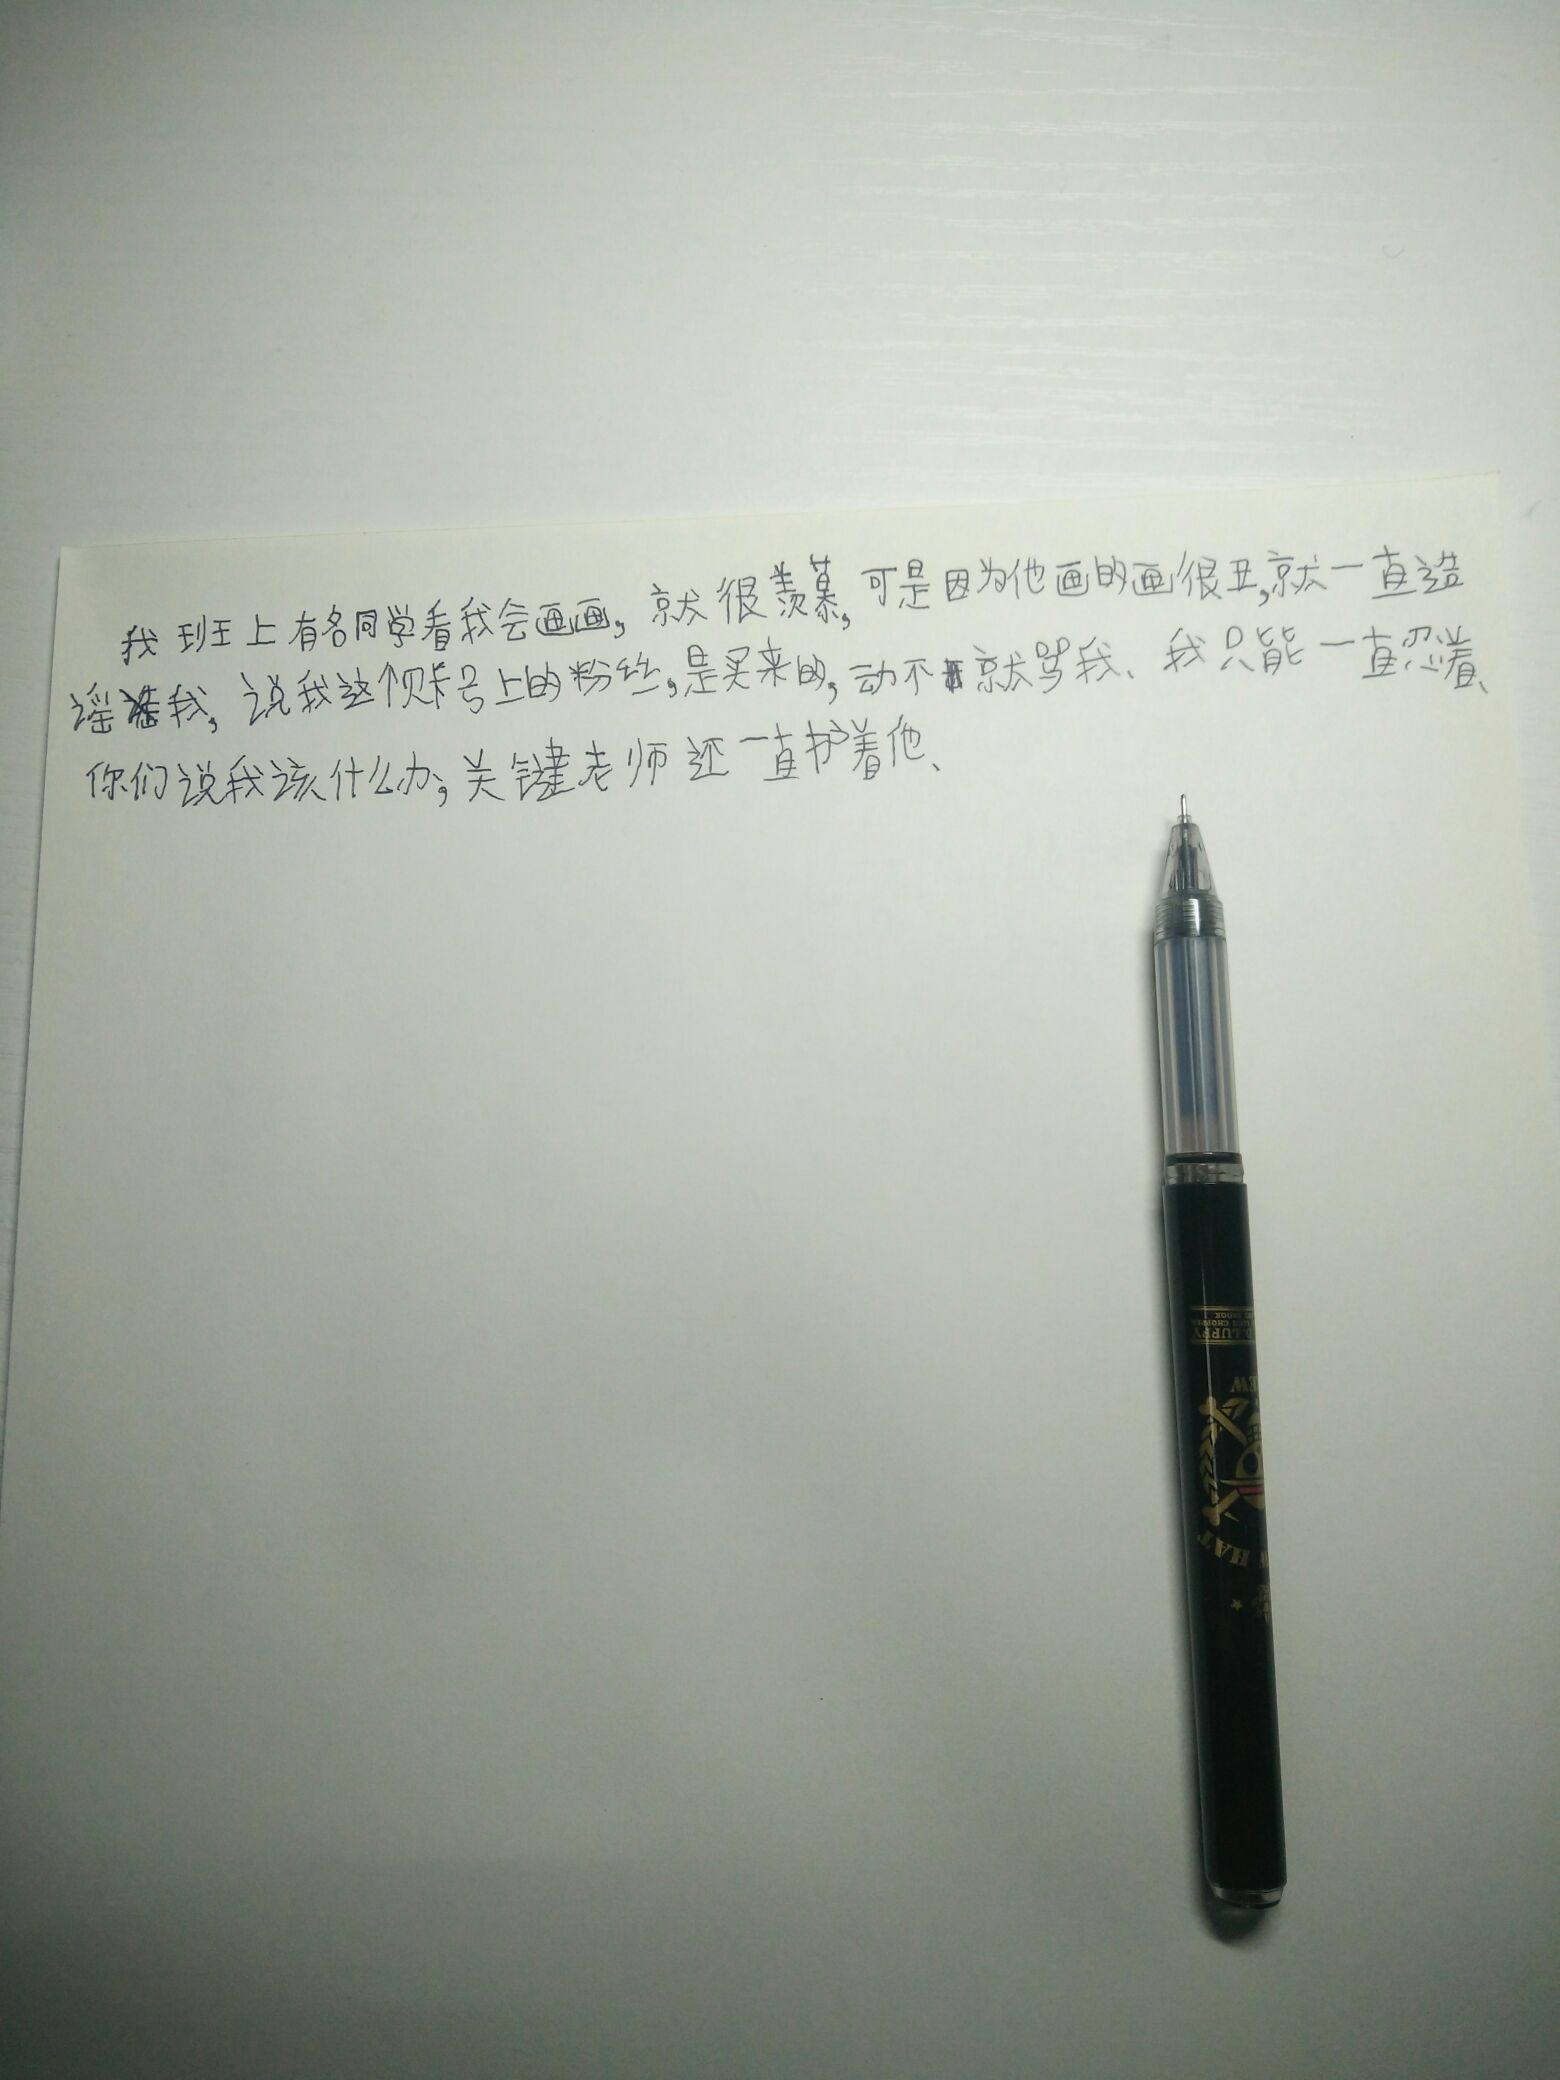 我班上有名同学看我会画画，就很羡慕，可是因为他画的画很丑，就一直造
谣我，说我这个账号上的粉丝，是买来的，动不就骂我、我只能一直忍着、
你们说我该什么办，关键老师还一直护着他、
D.LUFFY
HAT